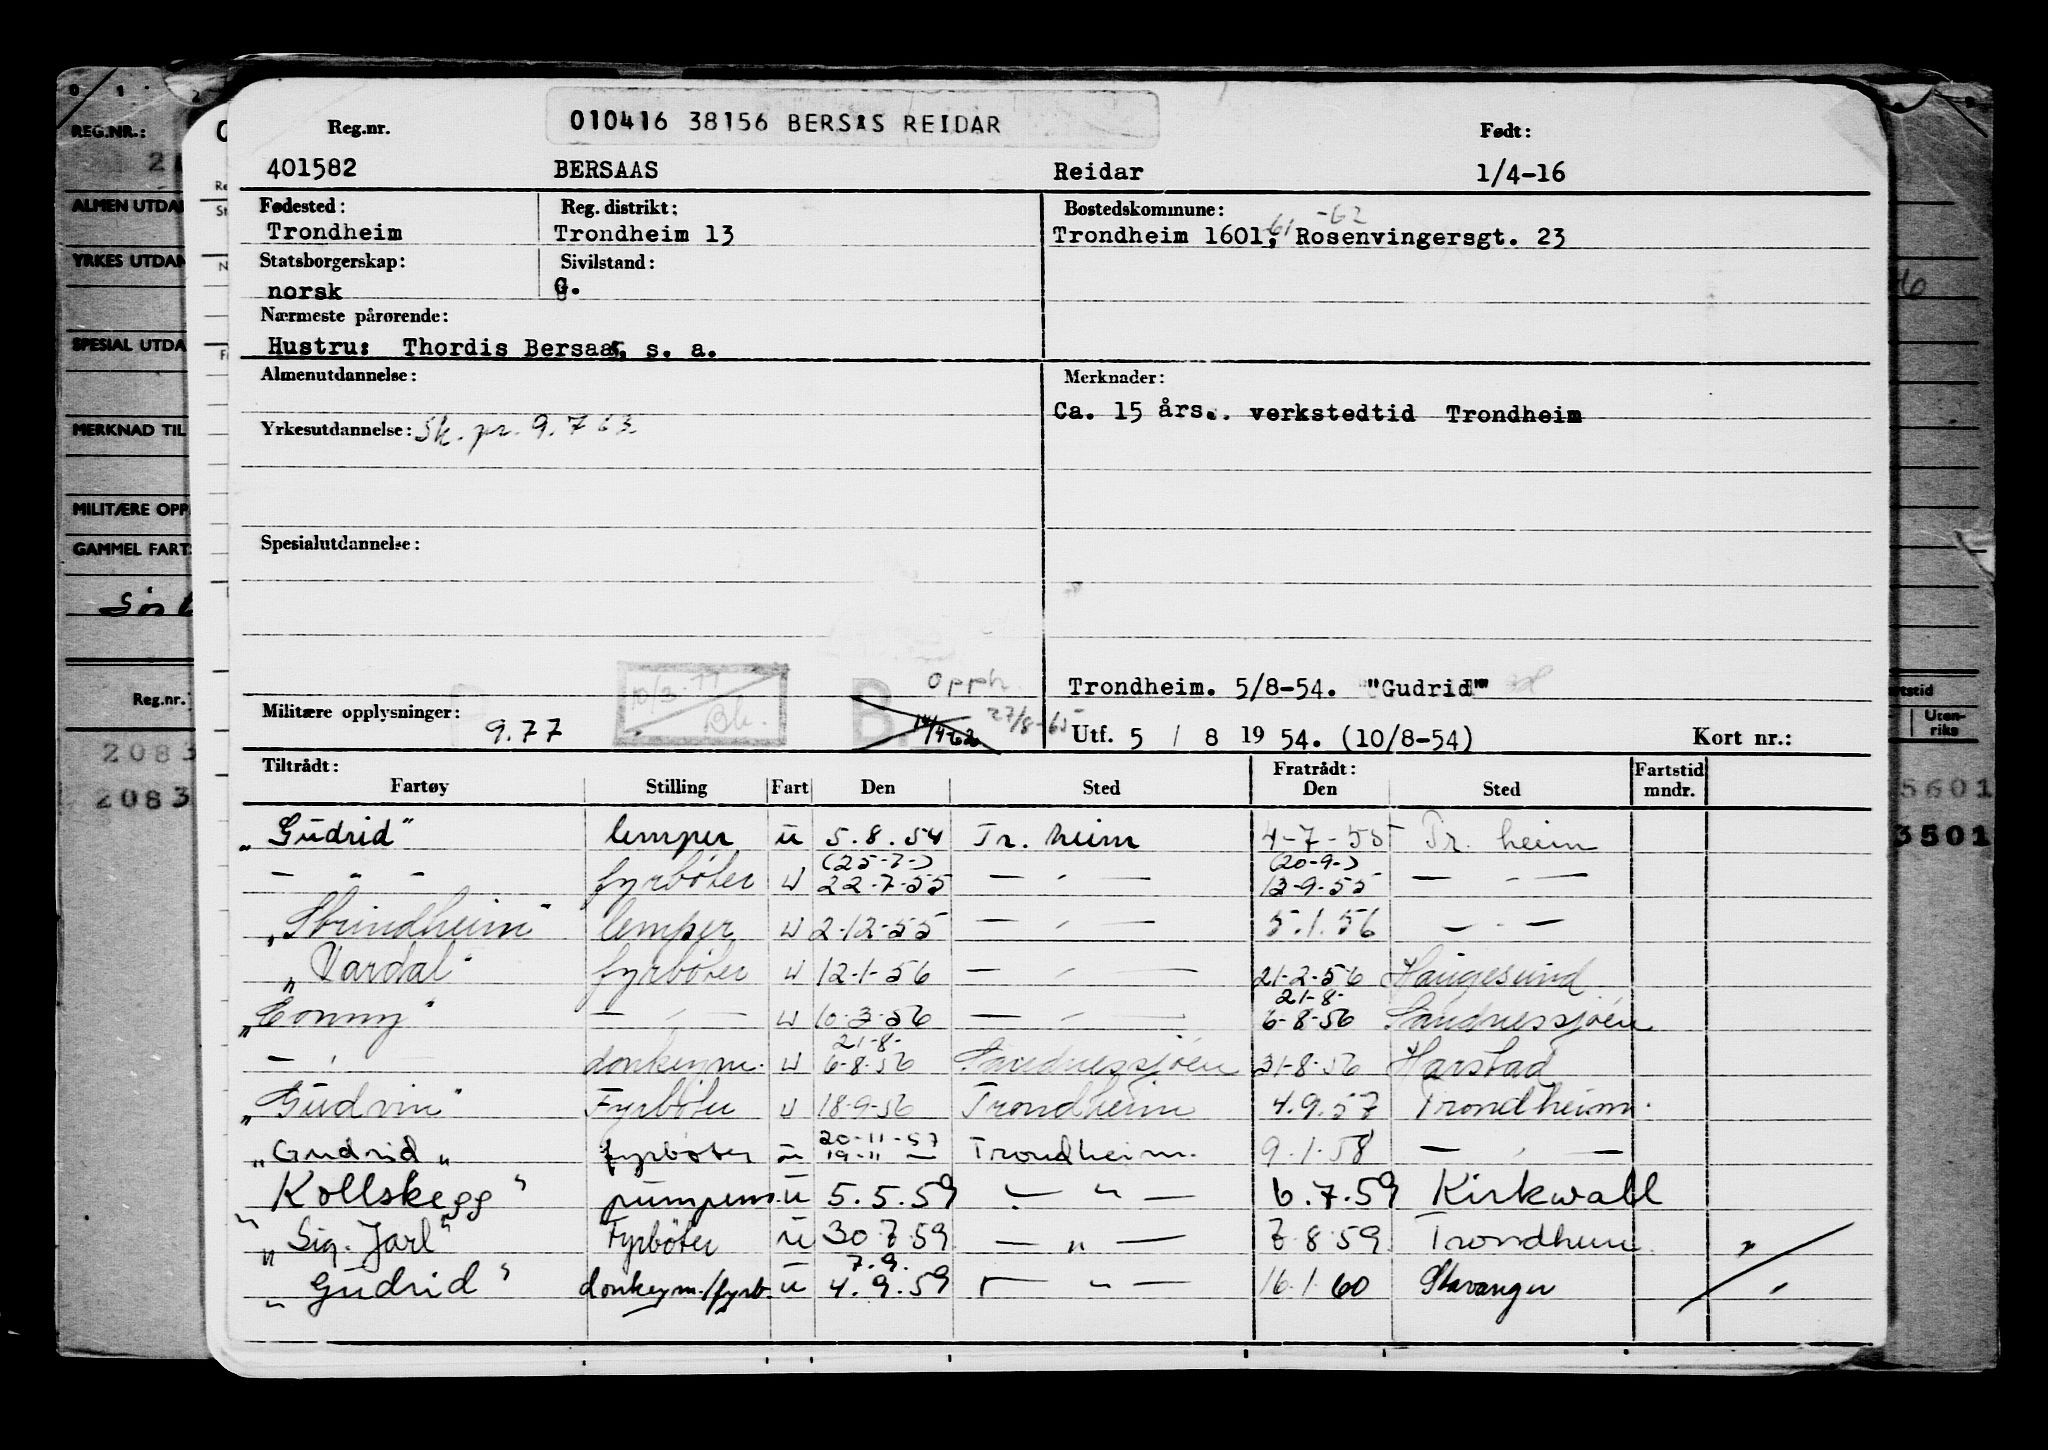 010416 38156 BERSÅS REIDAR
Reg.nr. Født:
401582 BERSAAS Reidar 1/4-16
Fødested: Reg. distrikt: Bostedskommune:
61 -62
Trondheim Trondheim 13 Trondheim 1601, Rosenvingersgt. 23
Statsborgerskap: Sivilstand:
norsk G.
Nærmeste pårørende:
Hustru: Thordis Bersaas, s. a.
Almenutdannelse: Merknader:
Ca. 15 års.. verkstedtid Trondheim
Yrkesutdannelse: Sk. pr. 9.7 63
Spesialutdannelse:
10/3-77 Bk. B. opph. 27/8-65
Trondheim. 5/8-54. "Gudrid"
Militære opplysninger: 9.77 14/4-62 Utf. 5 / 8 19 54. (10/8-54) Kort nr.:
Tiltrådt: Fratrådt: Fartstid
Fartøy Stilling Fart Den Sted Den Sted mndr.
„Gudrid" lemper u 5.8.54 Tr. heim 4-7-55 Tr. heim
(25-7-) (20-9-)
— „ — fyrbøter u 22-7-55 — „ — 13-9-55 — „ —
„Strindheim" lemper u 2-12-55 — „ — 5.1.56 — „ —
„Vardal" fyrbøter u 12-1-56 — „ — 21-2-56 Haugesund
21-8-
„Conny" — „ — u 10-3-56 — „ — 6-8-56 Sandnessjøen
21-8-
— „ — donkeym. u 6-8-56 Sandnessjøen 31-8-56 Harstad
„Gudvin" Fyrbøter u 18-9-56 Trondheim 4.9.57 Trondheim.
20-11-57
„Gudrid„ fyrbøter u 19-11 — Trondheim. 9.1.58 — „ —
„Kollskegg" pumpem. u 5.5.59 — „ — 6.7.59 Kirkwall
„Sig. Jarl" Fyrbøter u 30.7.59 — „ — 7.8.59 Trondheim. „
7.9.
„Gudrid" donkeym./fyrb. u 4.9.59 — „ — 16.1.60 Stavanger „
REG.NR.:
ALMEN UTDA
YRKES UTDAN
SPESIAL UTDA
MERKNAD TIL
MILITÆRE OPP
GAMMEL FARTS
Reg.nr.
2083
2083
rtstid
Uten-
riks
5601
3501